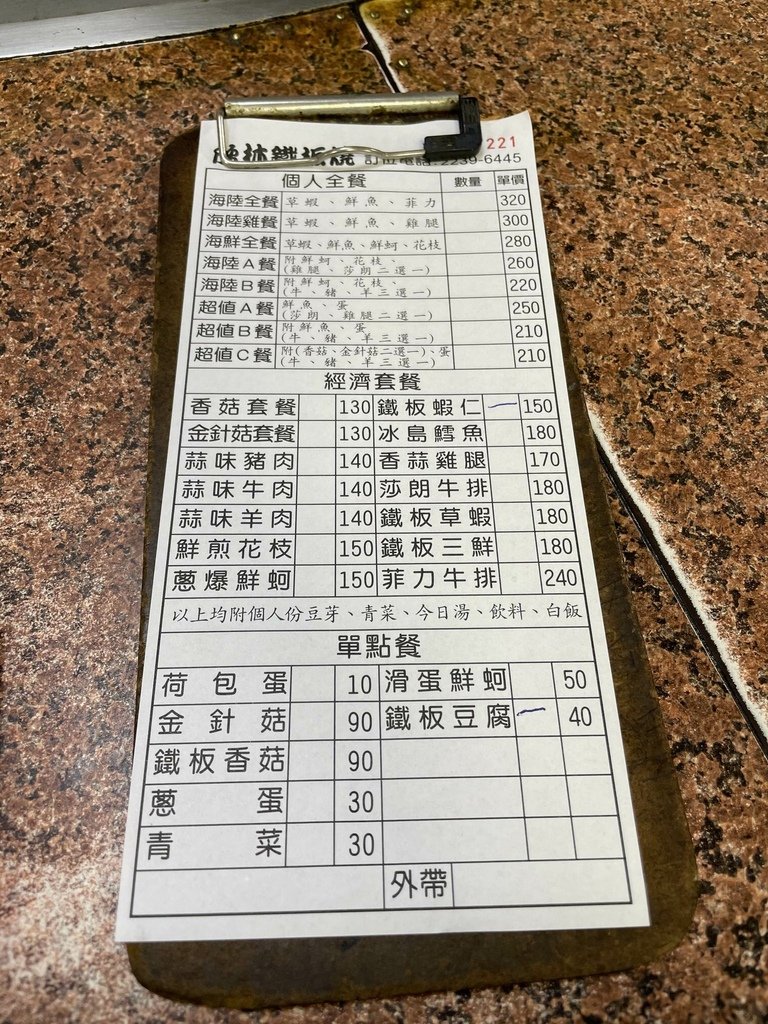 林鐵板燒 訂位電話:2239-6445 221
個人全餐 數量 單價
海陸全餐 草蝦、鮮魚、菲力 320
海陸雞餐 草蝦、鮮魚、雞腿 300
海鮮全餐 草蝦、鮮魚、鮮蚵、花枝 280
海陸A餐 附鮮蚵、花枝、 260
(雞腿、莎朗二選一)
海陸B餐 附鮮蚵、花枝、 220
(牛、豬、羊三選一)
超值A餐 鮮魚、蛋 250
(莎朗、雞腿二選一)
超值B餐 附鮮魚、蛋 210
(牛、豬、羊三選一)
超值C餐 附(香菇、金針菇二選一)、蛋 210
(牛、豬、羊三選一)
經濟套餐
香菇套餐 130 鐵板蝦仁 一 150
金針菇套餐 130 冰島鱈魚 180
蒜味豬肉 140 香蒜雞腿 170
蒜味牛肉 140 莎朗牛排 180
蒜味羊肉 140 鐵板草蝦 180
鮮煎花枝 150 鐵板三鮮 180
蔥爆鮮蚵 150 菲力牛排 240
以上均附個人份豆芽、青菜、今日湯、飲料、白飯
單點餐
荷包蛋 10 滑蛋鮮蚵 50
金針菇 90 鐵板豆腐 一 40
鐵板香菇 90
蔥蛋 30
青菜 30
外帶